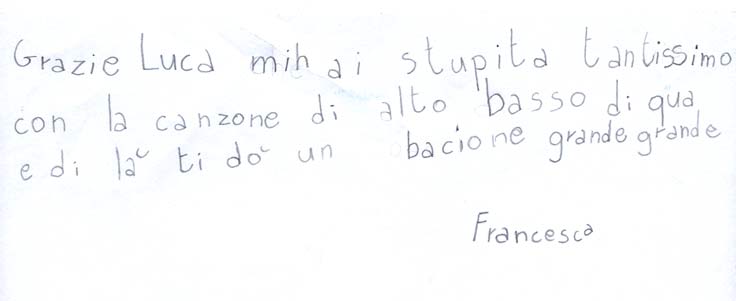 Grazie Luca mihai stupita tantissimo
con la canzone di alto basso di qua
e di là ti do un bacione grande grande
Francesca